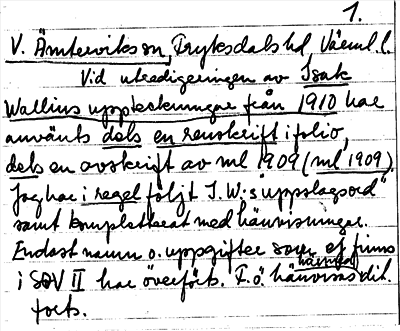 1.
V. Ämterviks sn, Fryksdals hd, Värml. l.
Vid utredigeringen av Isak
Wallins uppteckningar från 1910 har
använts dels en renskrift i folio,
dels en avskrift av ml 1909 (ml 1909).
Jag har i regel följt I.W:s "uppslagsord"
samt kompletterat med hänvisningar.
Endast namn o. uppgifter som ej finns
i SOV II har överförts. I. ö. hänvisas dit.
forts.